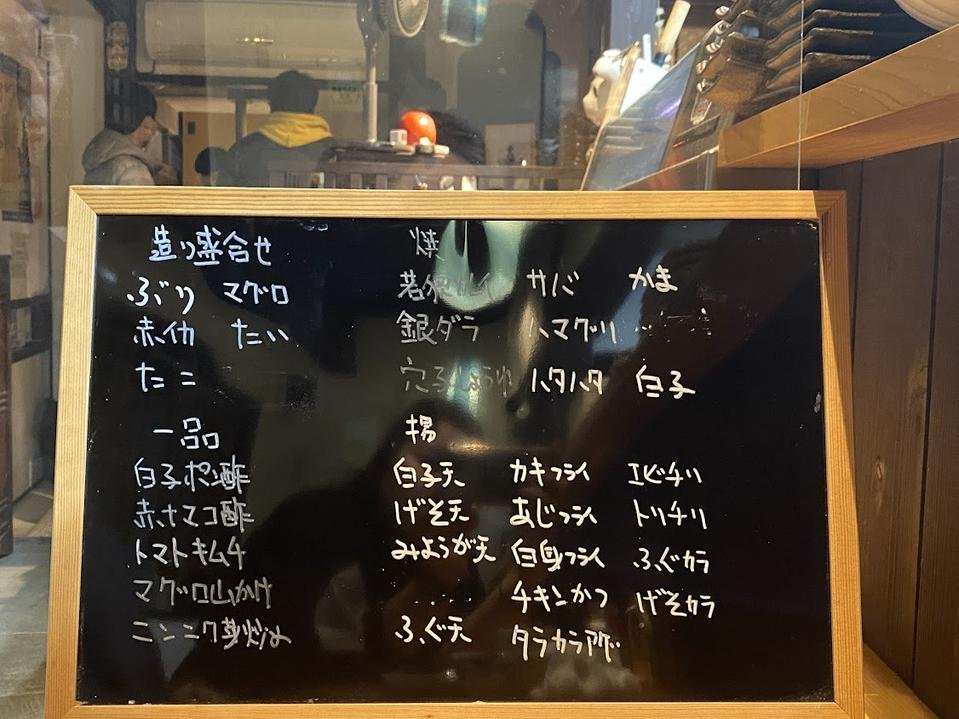 造り盛合せ
ぶり マグロ
赤イカ たい
たこ
一品
白子ポン酢
赤ナマコ酢
トマトキムチ
マグロ山かけ
ニンニク芽炒め
焼
若狭カレイ サバ かま
銀ダラ ハマグリ
穴子しょうゆ ハタハタ 白子
揚
白子天 カキフライ エビチリ
げそ天 あじフライ トリチリ
みょうが天 白身フライ ふぐカラ
チキンかつ げそカラ
ふぐ天 タラカラ